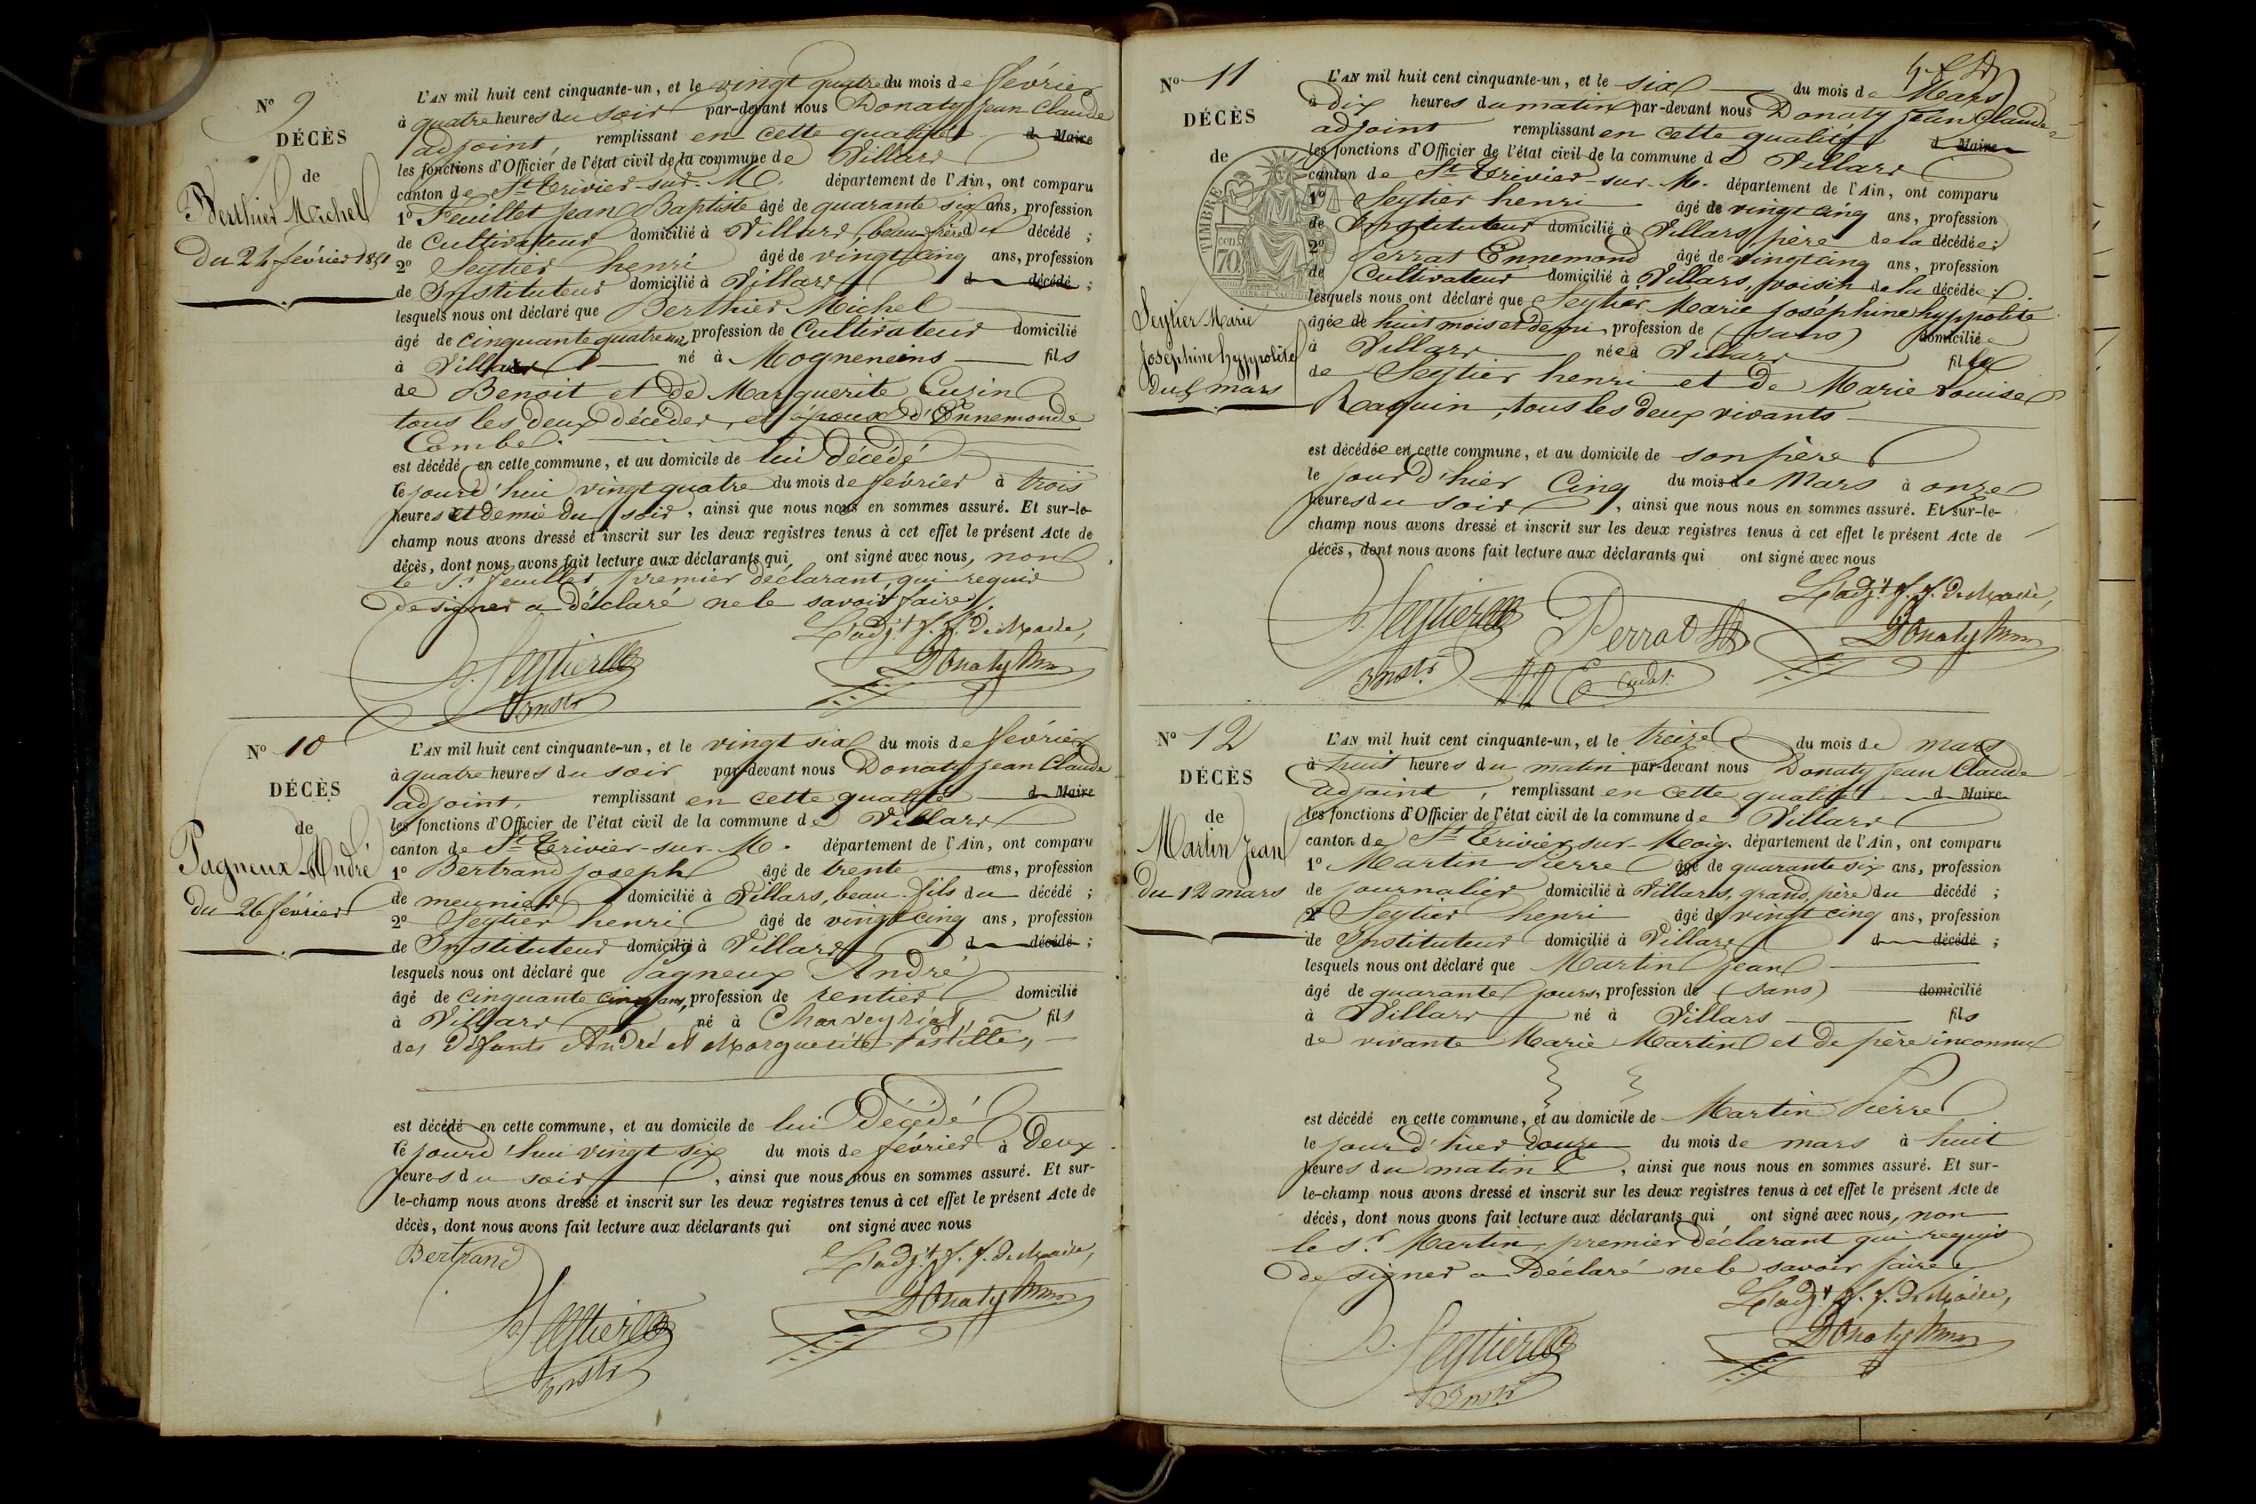 N° 9
DÉCÈS
de
Berthier Michel
du 24 février 1851
L'AN mil huit cent cinquante-un, et le vingt quatre du mois de février
à quatre heures du soir par-devant nous Donaty Jean Claude
adjoint, remplissant en cette qualité d Maire
les fonctions d'Officier de l'état civil de la commune de Villars
canton de St Trivier-sur-M. département de l'Ain, ont comparu
1° Feuillet Jean Baptiste âgé de quarante six ans, profession
de Cultivateur domicilié à Villars, beau-frère du décédé ;
2° Seytier henri âgé de vingt cinq ans, profession
de Instituteur domicilié à Villars d décédé ;
lesquels nous ont déclaré que Berthier Michel
âgé de cinquante quatre ans, profession de Cultivateur domicilié
à Villars né à Mogneneins fils
de Benoit et de Marguerite Curin
tous les deux décédés, et époux d'Ennemonde
Combe.
est décédé en cette commune, et au domicile de lui décédé
le jourd'hui vingt quatre du mois de février à trois
heures et demie du soir, ainsi que nous nous en sommes assuré. Et sur-le-
champ nous avons dressé et inscrit sur les deux registres tenus à cet effet le présent Acte de
décès, dont nous avons fait lecture aux déclarants qui ont signé avec nous, non
le Sr Feuillet premier déclarant, qui requis
de signer a déclaré ne le savoir faire.
L'adjt f. f. de Maire,
Seytier
Instr
Donaty
N° 10
DÉCÈS
de
Pagneux André
du 26 février
L'AN mil huit cent cinquante-un, et le vingt six du mois de février
à quatre heures du soir par-devant nous Donaty Jean Claude
adjoint, remplissant en cette qualité d Maire
les fonctions d'Officier de l'état civil de la commune de Villars
canton de St Trivier-sur-M. département de l'Ain, ont comparu
1° Bertrand Joseph âgé de trente ans, profession
de meunier domicilié à Villars, beau-fils du décédé ;
2° Seytier henri âgé de vingt cinq ans, profession
de Instituteur domicilié à Villars d décédé ;
lesquels nous ont déclaré que Pagneux André
âgé de cinquante cinq ans, profession de rentier domicilié
à Villars né à Charveyriat, fils
des défunts André et Marguerite Pastille,
est décédé en cette commune, et au domicile de lui Décédé
le jourd'hui vingt six du mois de février à Deux
heures du soir, ainsi que nous nous en sommes assuré. Et sur-
le-champ nous avons dressé et inscrit sur les deux registres tenus à cet effet le présent Acte de
décès, dont nous avons fait lecture aux déclarants qui ont signé avec nous
Bertrand
L'adjt f. f. de Maire,
Seytier
Instr
Donaty
N° 11
DÉCÈS
de
TIMBRE
70
Seytier Marie
Joséphine hyppolite
du 5 mars
L'AN mil huit cent cinquante-un, et le six du mois de Mars
à Dix heures du matin par-devant nous Donaty Jean Claude
adjoint remplissant en cette qualité d Maire
les fonctions d'Officier de l'état civil de la commune de Villars
canton de St Trivier-sur-M. département de l'Ain, ont comparu
1° Seytier henri âgé de vingt cinq ans, profession
de Instituteur domicilié à Villars, père de la décédée ;
2° Perrat Ennemond âgé de vingt cinq ans, profession
de Cultivateur domicilié à Villars, voisin de la décédée ;
lesquels nous ont déclaré que Seytier Marie Joséphine hyppolite
âgée de huit mois et demi, profession de (sans) domicilié
à Villars née à Villars fille
de Seytier henri et de Marie Louise
Raquin, tous les deux vivants
est décédée en cette commune, et au domicile de son père
le jour d'hier Cinq du mois de Mars à onze
heures du soir, ainsi que nous nous en sommes assuré. Et sur-le-
champ nous avons dressé et inscrit sur les deux registres tenus à cet effet le présent Acte de
décès, dont nous avons fait lecture aux déclarants qui ont signé avec nous
L'adjt f. f. de Maire,
Seytier
Instr
Perrat
Donaty
N° 12
DÉCÈS
de
Martin Jean
du 12 mars
L'AN mil huit cent cinquante-un, et le treize du mois de mars
à huit heures du matin par-devant nous Donaty Jean Claude
adjoint, remplissant en cette qualité d Maire
les fonctions d'Officier de l'état civil de la commune de Villars
canton de St Trivier-sur-Moig. département de l'Ain, ont comparu
1° Martin Pierre âgé de quarante six ans, profession
de journalier domicilié à Villars, grand père du décédé ;
2° Seytier henri âgé de vingt cinq ans, profession
de Instituteur domicilié à Villars d décédé ;
lesquels nous ont déclaré que Martin Jean
âgé de quarante jours, profession de (sans) domicilié
à Villars né à Villars fils
de vivante Marie Martin et de père inconnu
est décédé en cette commune, et au domicile de Martin Pierre
le jour d'hier Douze du mois de mars à huit
heures du matin, ainsi que nous nous en sommes assuré. Et sur-
le-champ nous avons dressé et inscrit sur les deux registres tenus à cet effet le présent Acte de
décès, dont nous avons fait lecture aux déclarants qui ont signé avec nous, non
le Sr Martin, premier déclarant qui requis
de signer a déclaré ne le savoir faire
L'adjt f. f. de Maire,
Seytier
Instr
Donaty